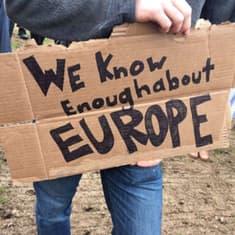 We Know
Enough about
EUROPE